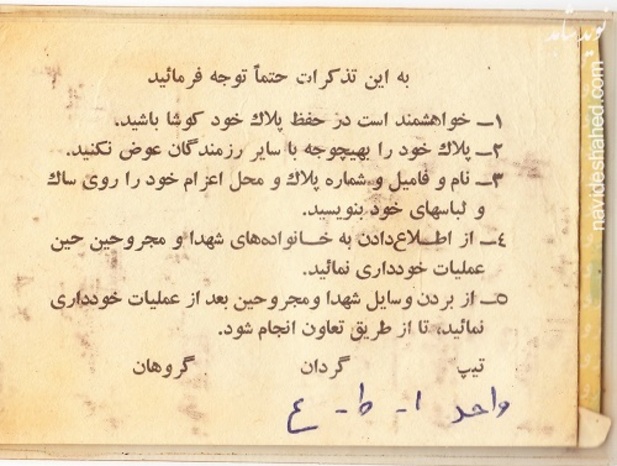 به این تذکرات حتماً توجه فرمائید
۱ــ خواهشمند است در حفظ پلاك خود كوشا باشید.
۲ــ پلاك خود را بهیچوجه با سایر رزمندگان عوض نكنید.
۳ــ نام و فامیل و شماره پلاك و محل اعزام خود را روی ساك
و لباسهای خود بنویسید.
٤ــ از اطــلاع‌دادن به خــانواده‌های شهدا و مجروحین حین
عملیات خودداری نمائید.
۵ــ از بردن وسایل شهدا ومجروحین بعد از عملیات خودداری
نمائید، تا از طریق تعاون انجام شود.
تیپ گردان گروهان
واحد ا - ط - ع
نوید شاهد
navideshahed.com